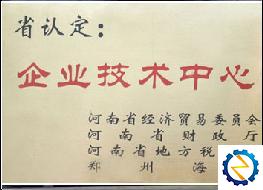 省认定：
企业技术中心
河南省经济贸易委员会
河南省财政厅
河南省地方税
郑州海